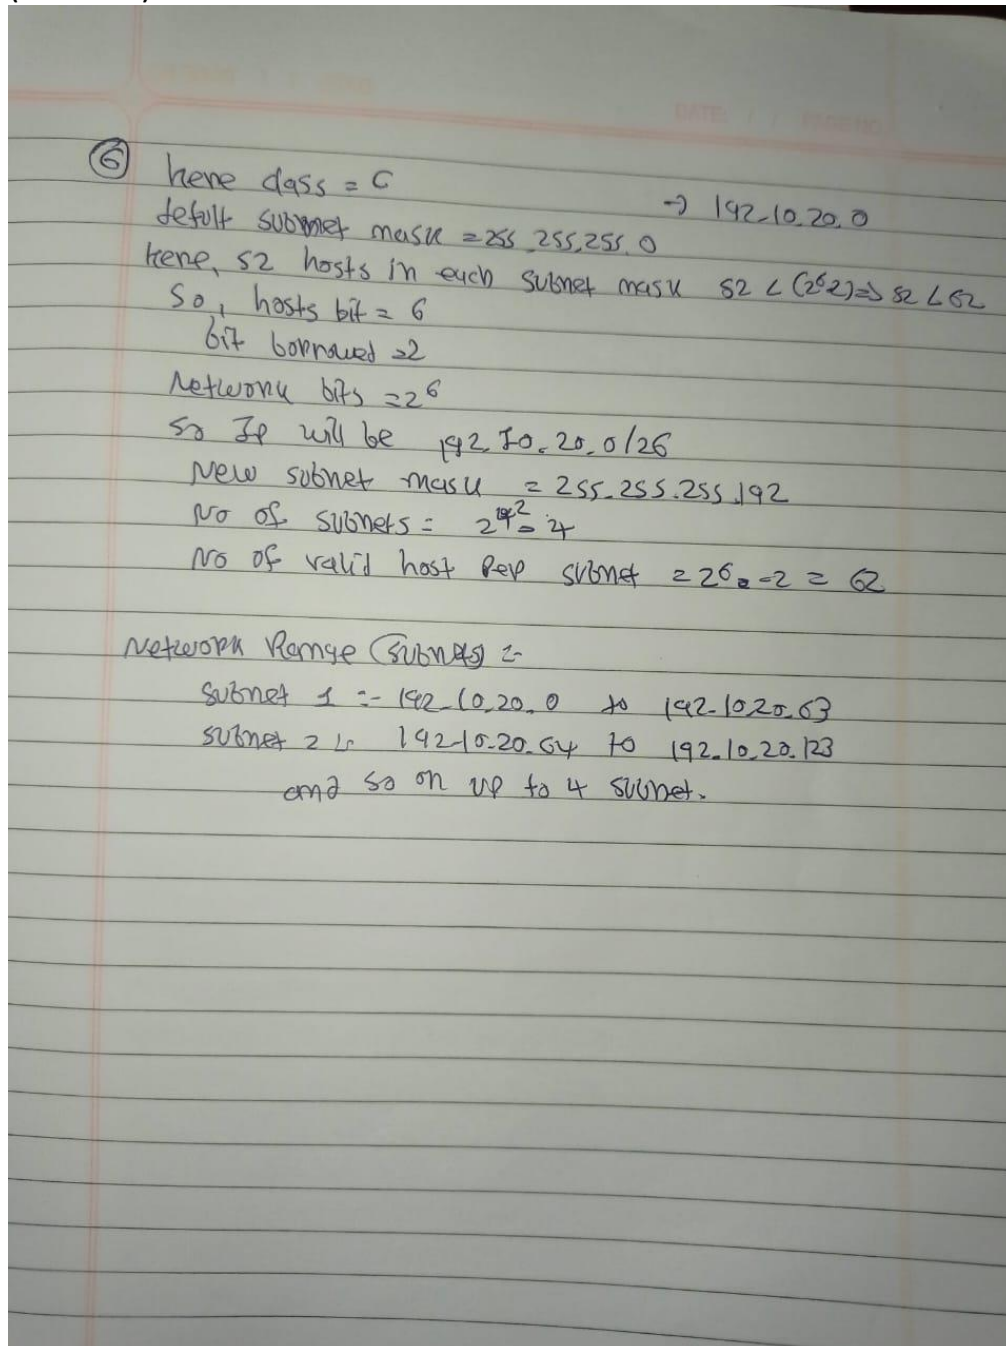 DATE: / /
⑥ here class = C
→ 192.10.20.0
defult subnet mask = 255.255.255.0
here, 52 hosts in each subnet mask 52 < (2⁶-2) => 52 < 62
So, hosts bit = 6
bit borrowed = 2
Network bits = 2⁶
so Ip will be 192.10.20.0/26
New subnet mask = 255.255.255.192
No of subnets = 2² = 4
No of valid host Per subnet = 2⁶ - 2 = 62
Network Range (subnets) :-
subnet 1 :- 192.10.20.0 to 192.10.20.63
subnet 2 :- 192.10.20.64 to 192.10.20.123
and so on up to 4 subnet.